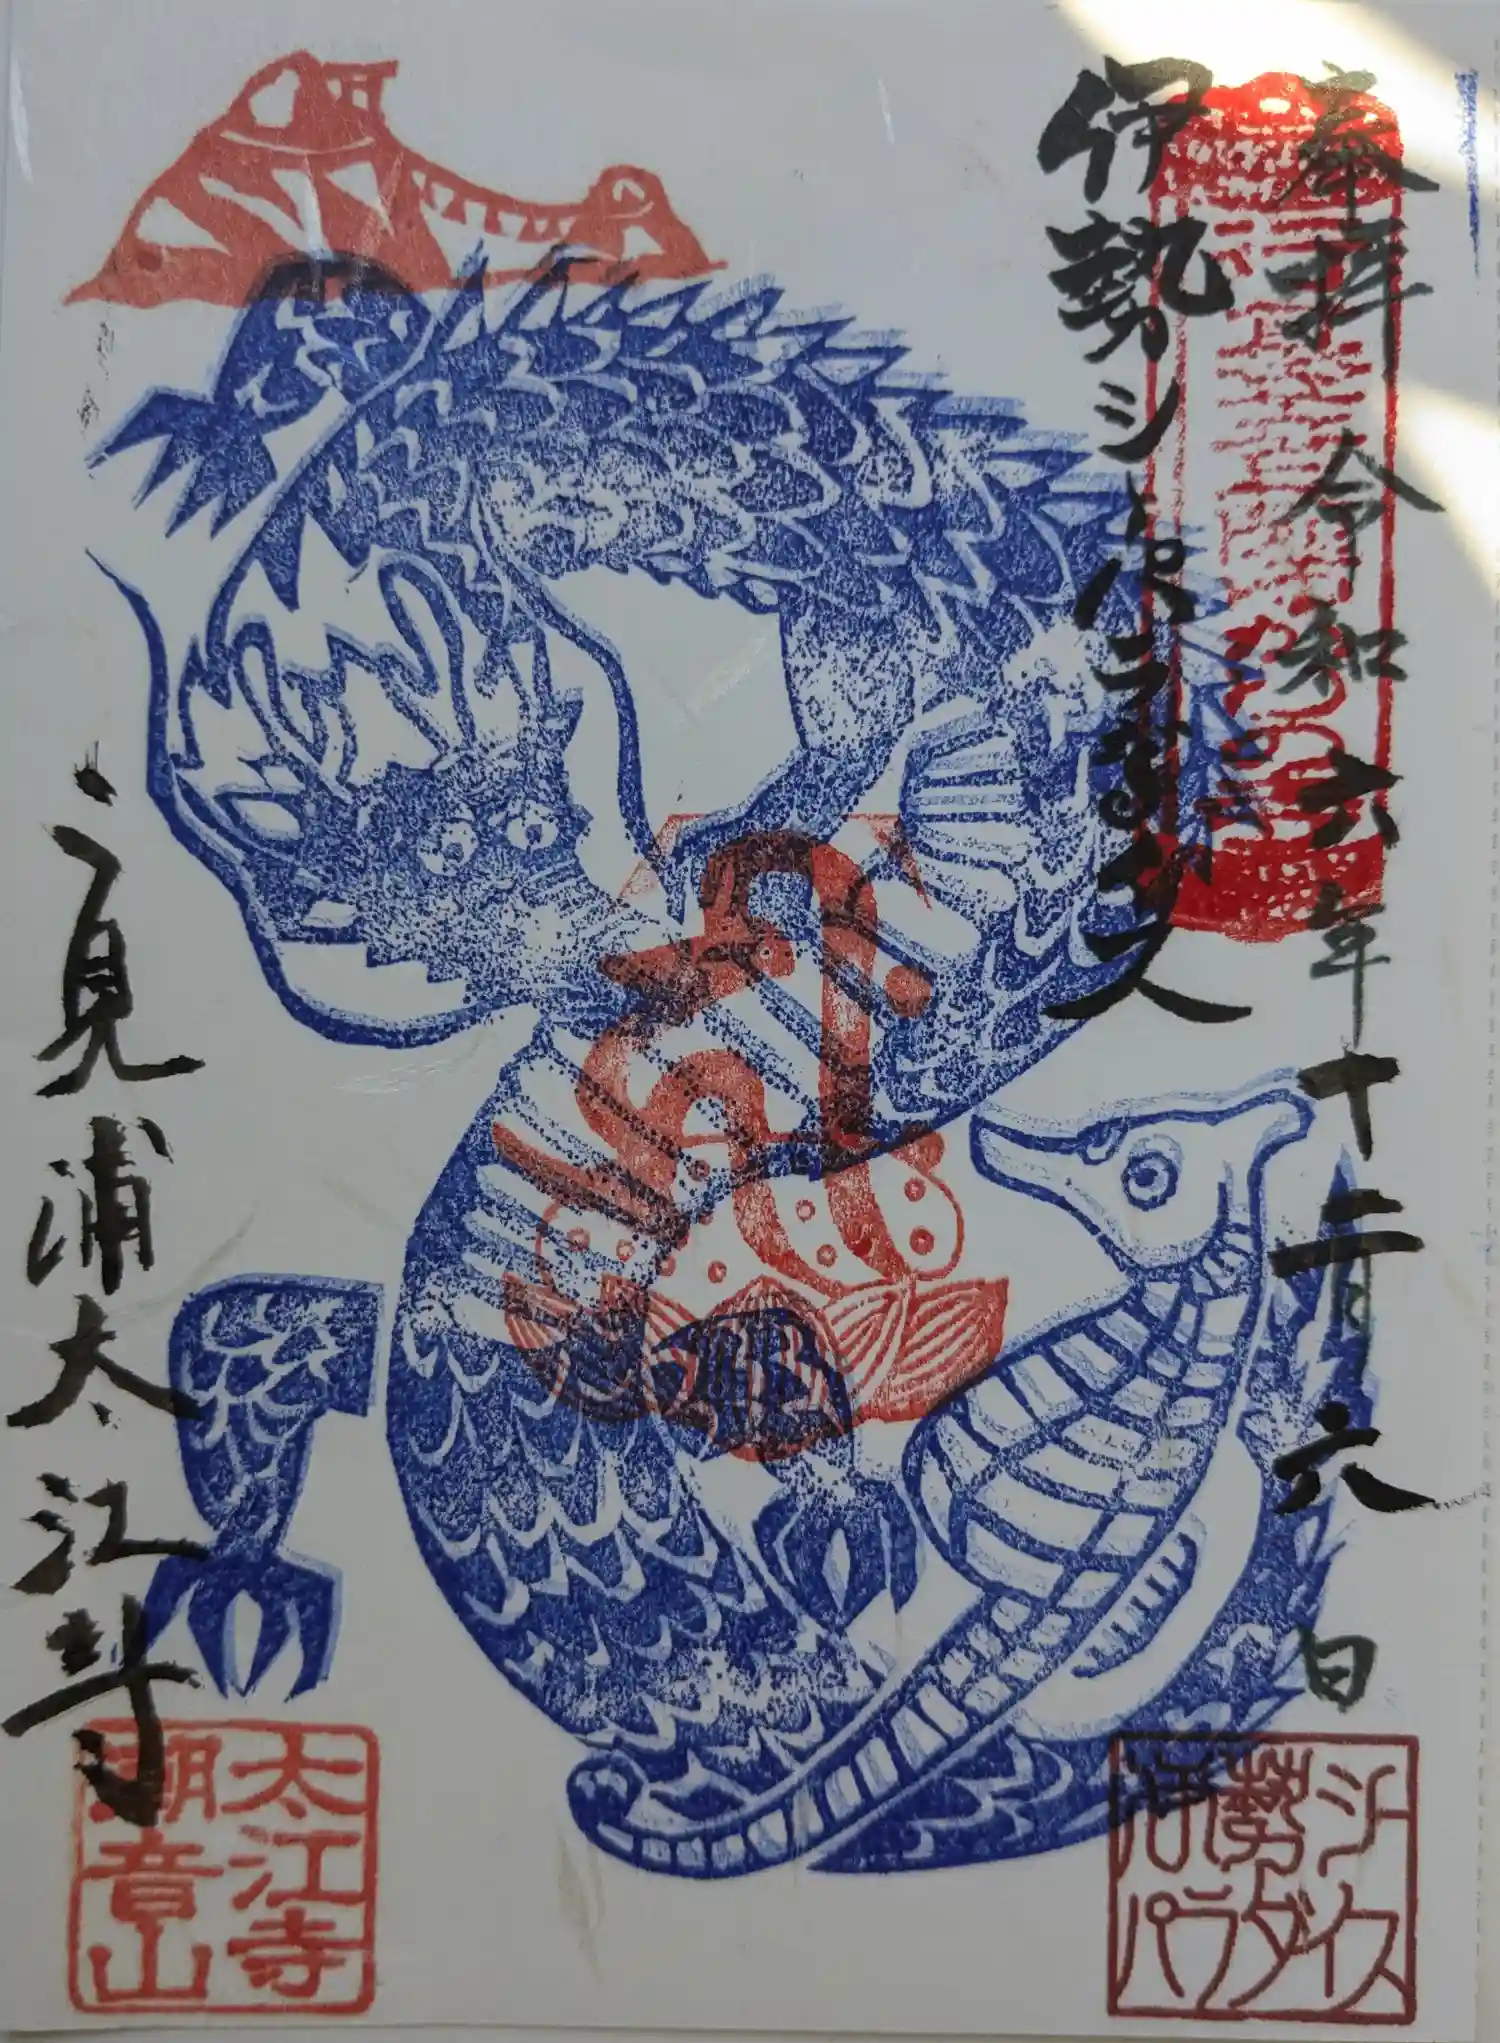 奉拝 令和六年十二月六日
伊勢シーパラダイス
二見浦太江寺
伊勢シー
パラダイス
太江寺
潮音山